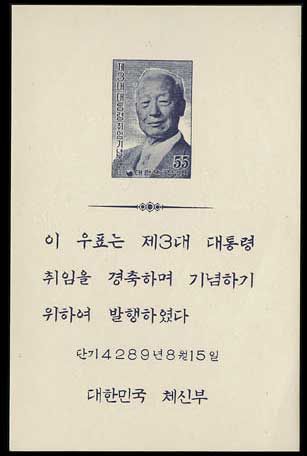 제3대대통령취임기념
55
대한민국우표
이 우표는 제3대 대통령
취임을 경축하며 기념하기
위하여 발행하였다
단기4289년8월15일
대한민국 체신부